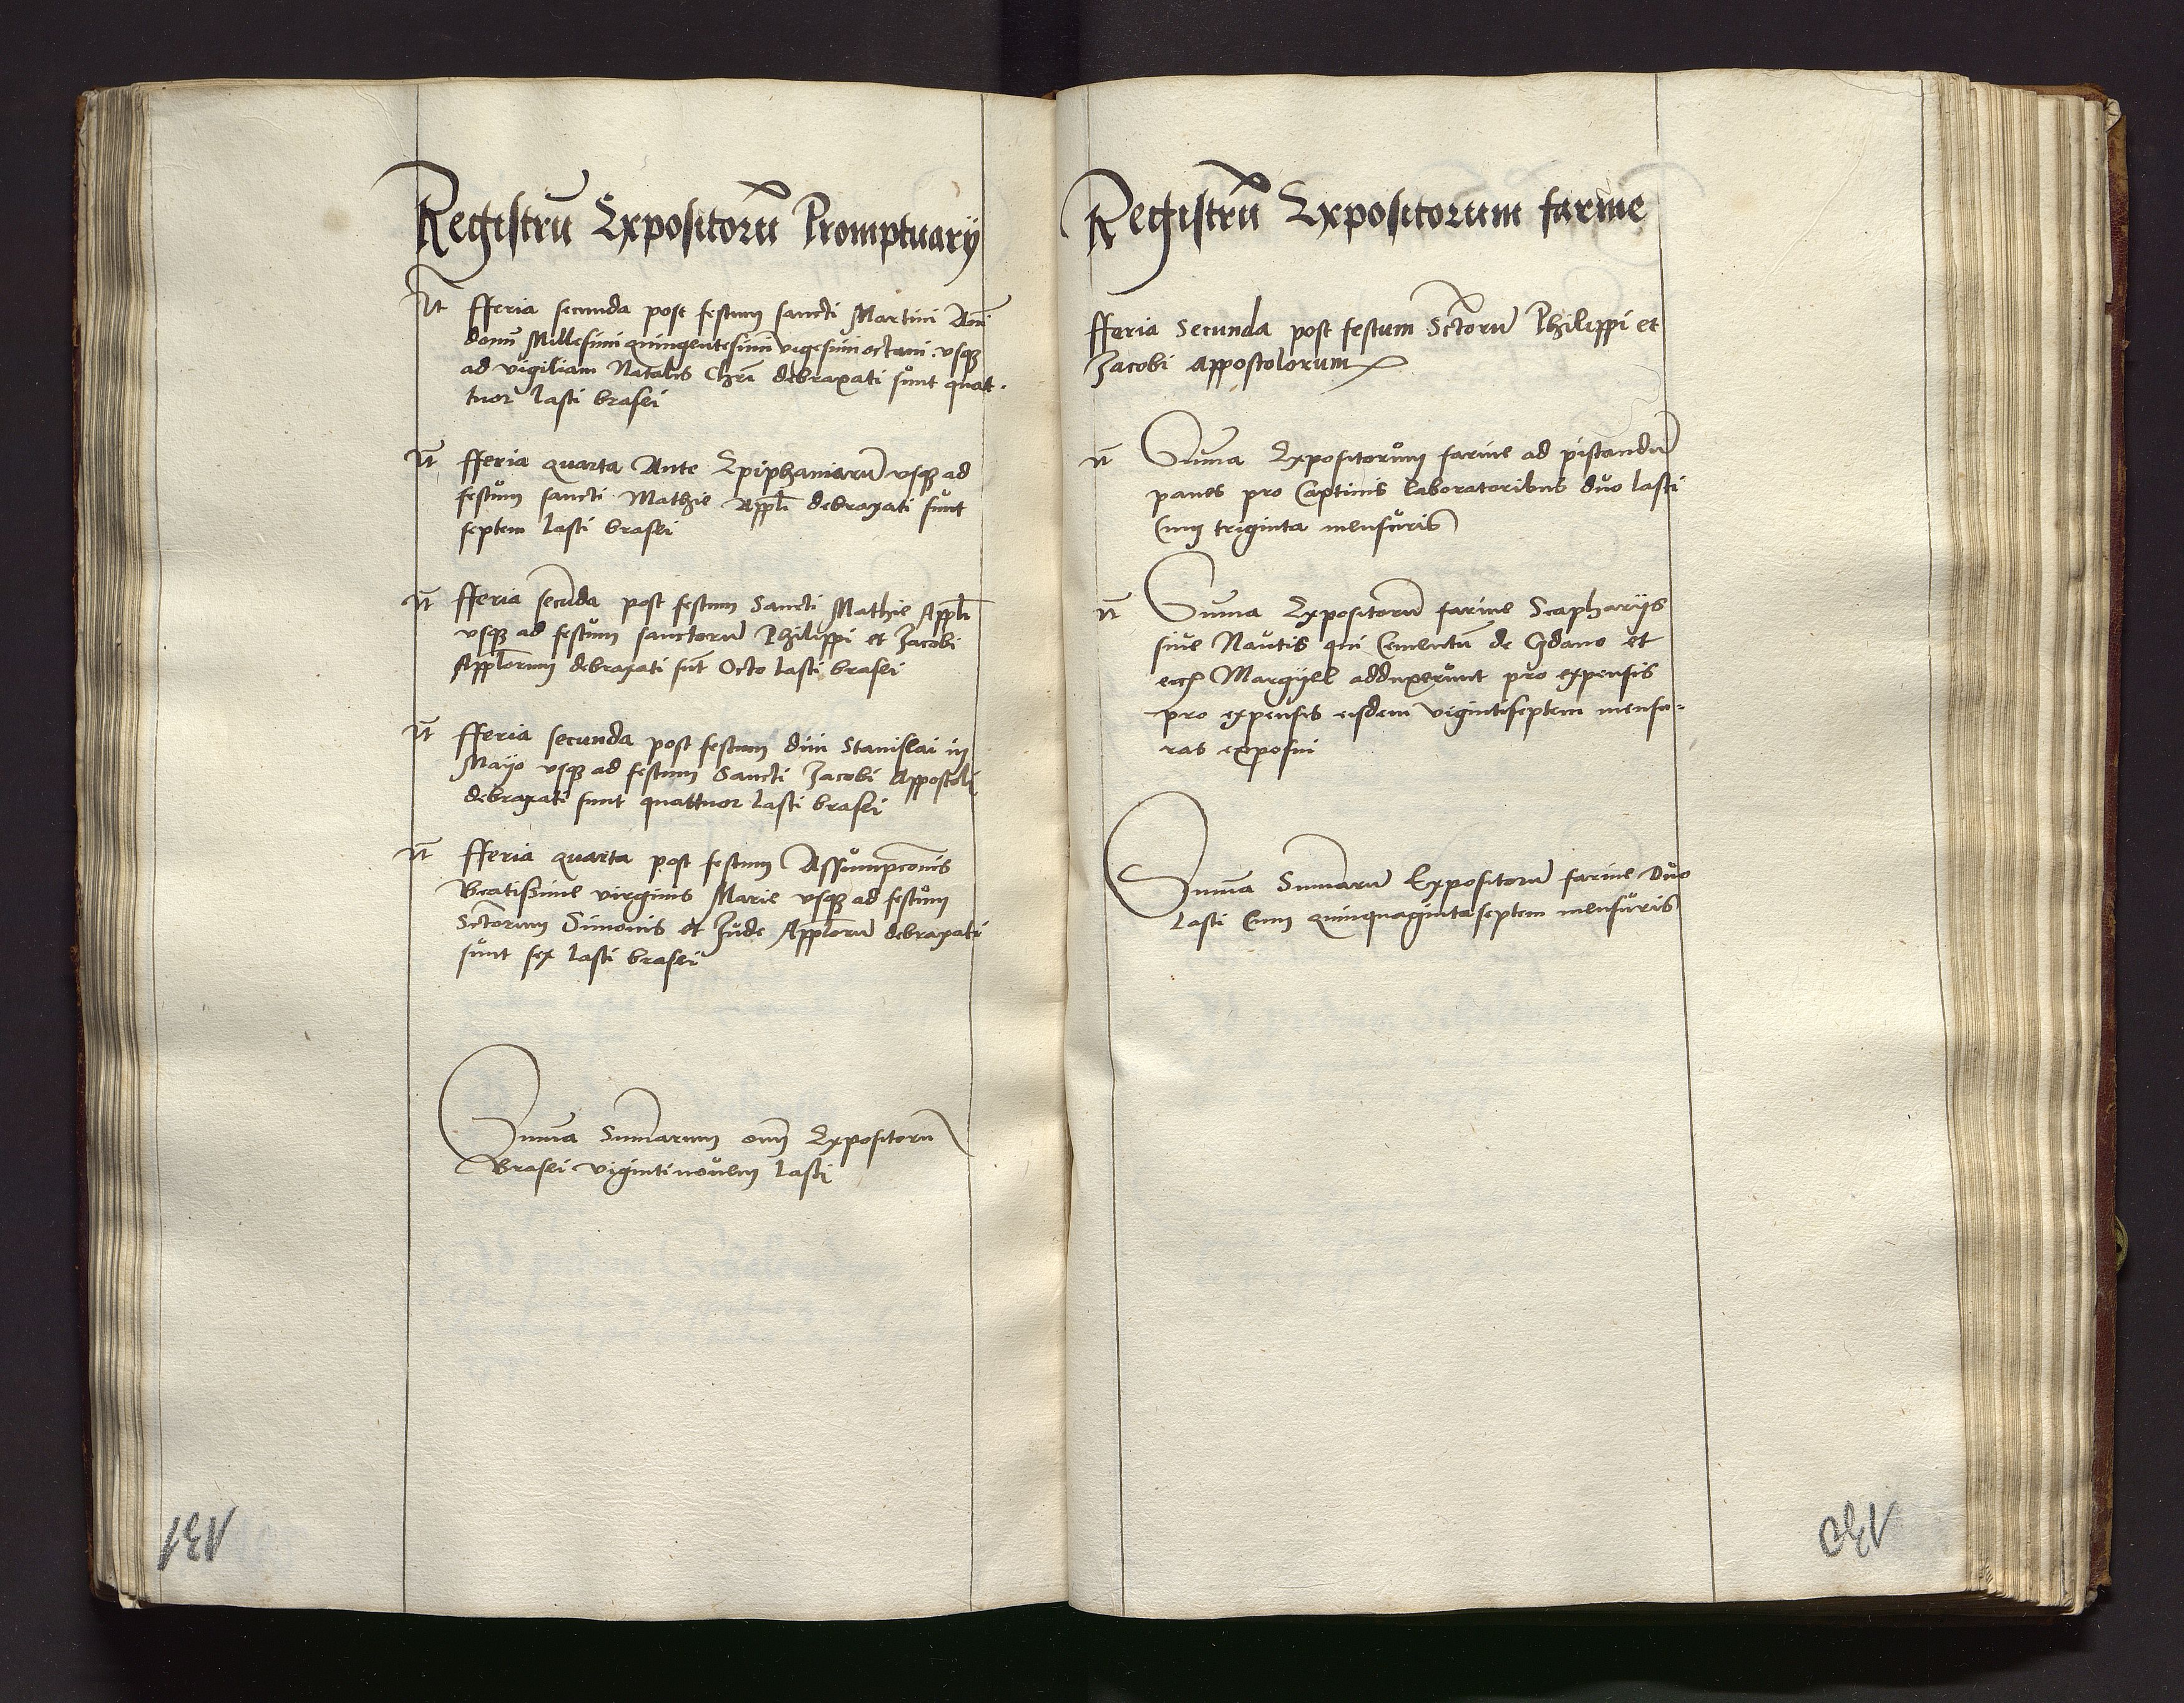 Registrū Expositorū Promptuarÿ
It fferia secunda post festum sancti Martini Anni
domi Millesimi quingentesimi vigesimi octavi vsq
ad vigiliam Natalis Chri debraxati sunt quat-
tuor lasti brasei
It fferia quarta Ante Epiphaniarū vsq ad
festum sancti Mathie Appli debraxati sunt
septem lasti brasei
It fferia secūda post festum Sancti Mathie Appli
vsq ad festum sanctorū Philippi et Jacobi
Applorum debraxati sūt Octo lasti brasei
It fferia secunda post festum divi Stanislai in
Mayo vsq ad festum Sancti Jacobi Appostoli
debraxati sunt quattuor lasti brasei
It fferia quarta post festum Assumpcōnis
Beatissime virginis Marie vsq ad festum
Sctorum Simonis et Jude Applorū debraxati
sunt sex lasti brasei
Suma Sumarum oīm Expositorū
Brasei vigintinovem lasti
131
Registrū Expositorum farine
fferia Secunda post festum Sctorū Philippi et
Jacobi Appostolorum
It Suma Expositorum farine ad pistandū
panes pro Captivis laboratoribus duo lasti
Cum triginta mensuris
It Suma Expositorū farine Scapharijs
sive Nautis qui Cementū de Gdano et
ecc Margÿel adduxerunt pro expensis
pro expensis eisdem vigintiseptem mensu=
ras exposui
Suma Sumarū Expositorū farine Duo
lasti Cum quinquagintaseptem mensuris
130